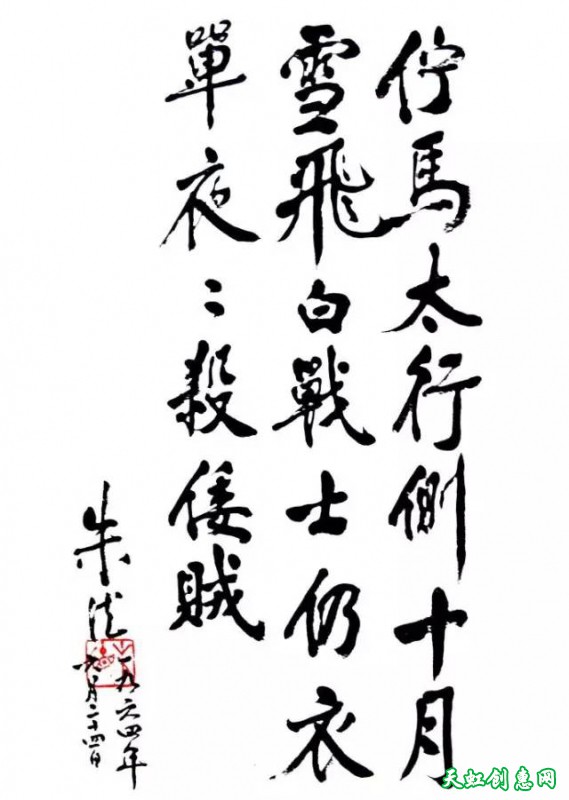 佇馬太行側十月
雪飛白戰士仍衣
單夜〻殺倭賊
朱德
一九六四年
六月二十四日
天虹创意网